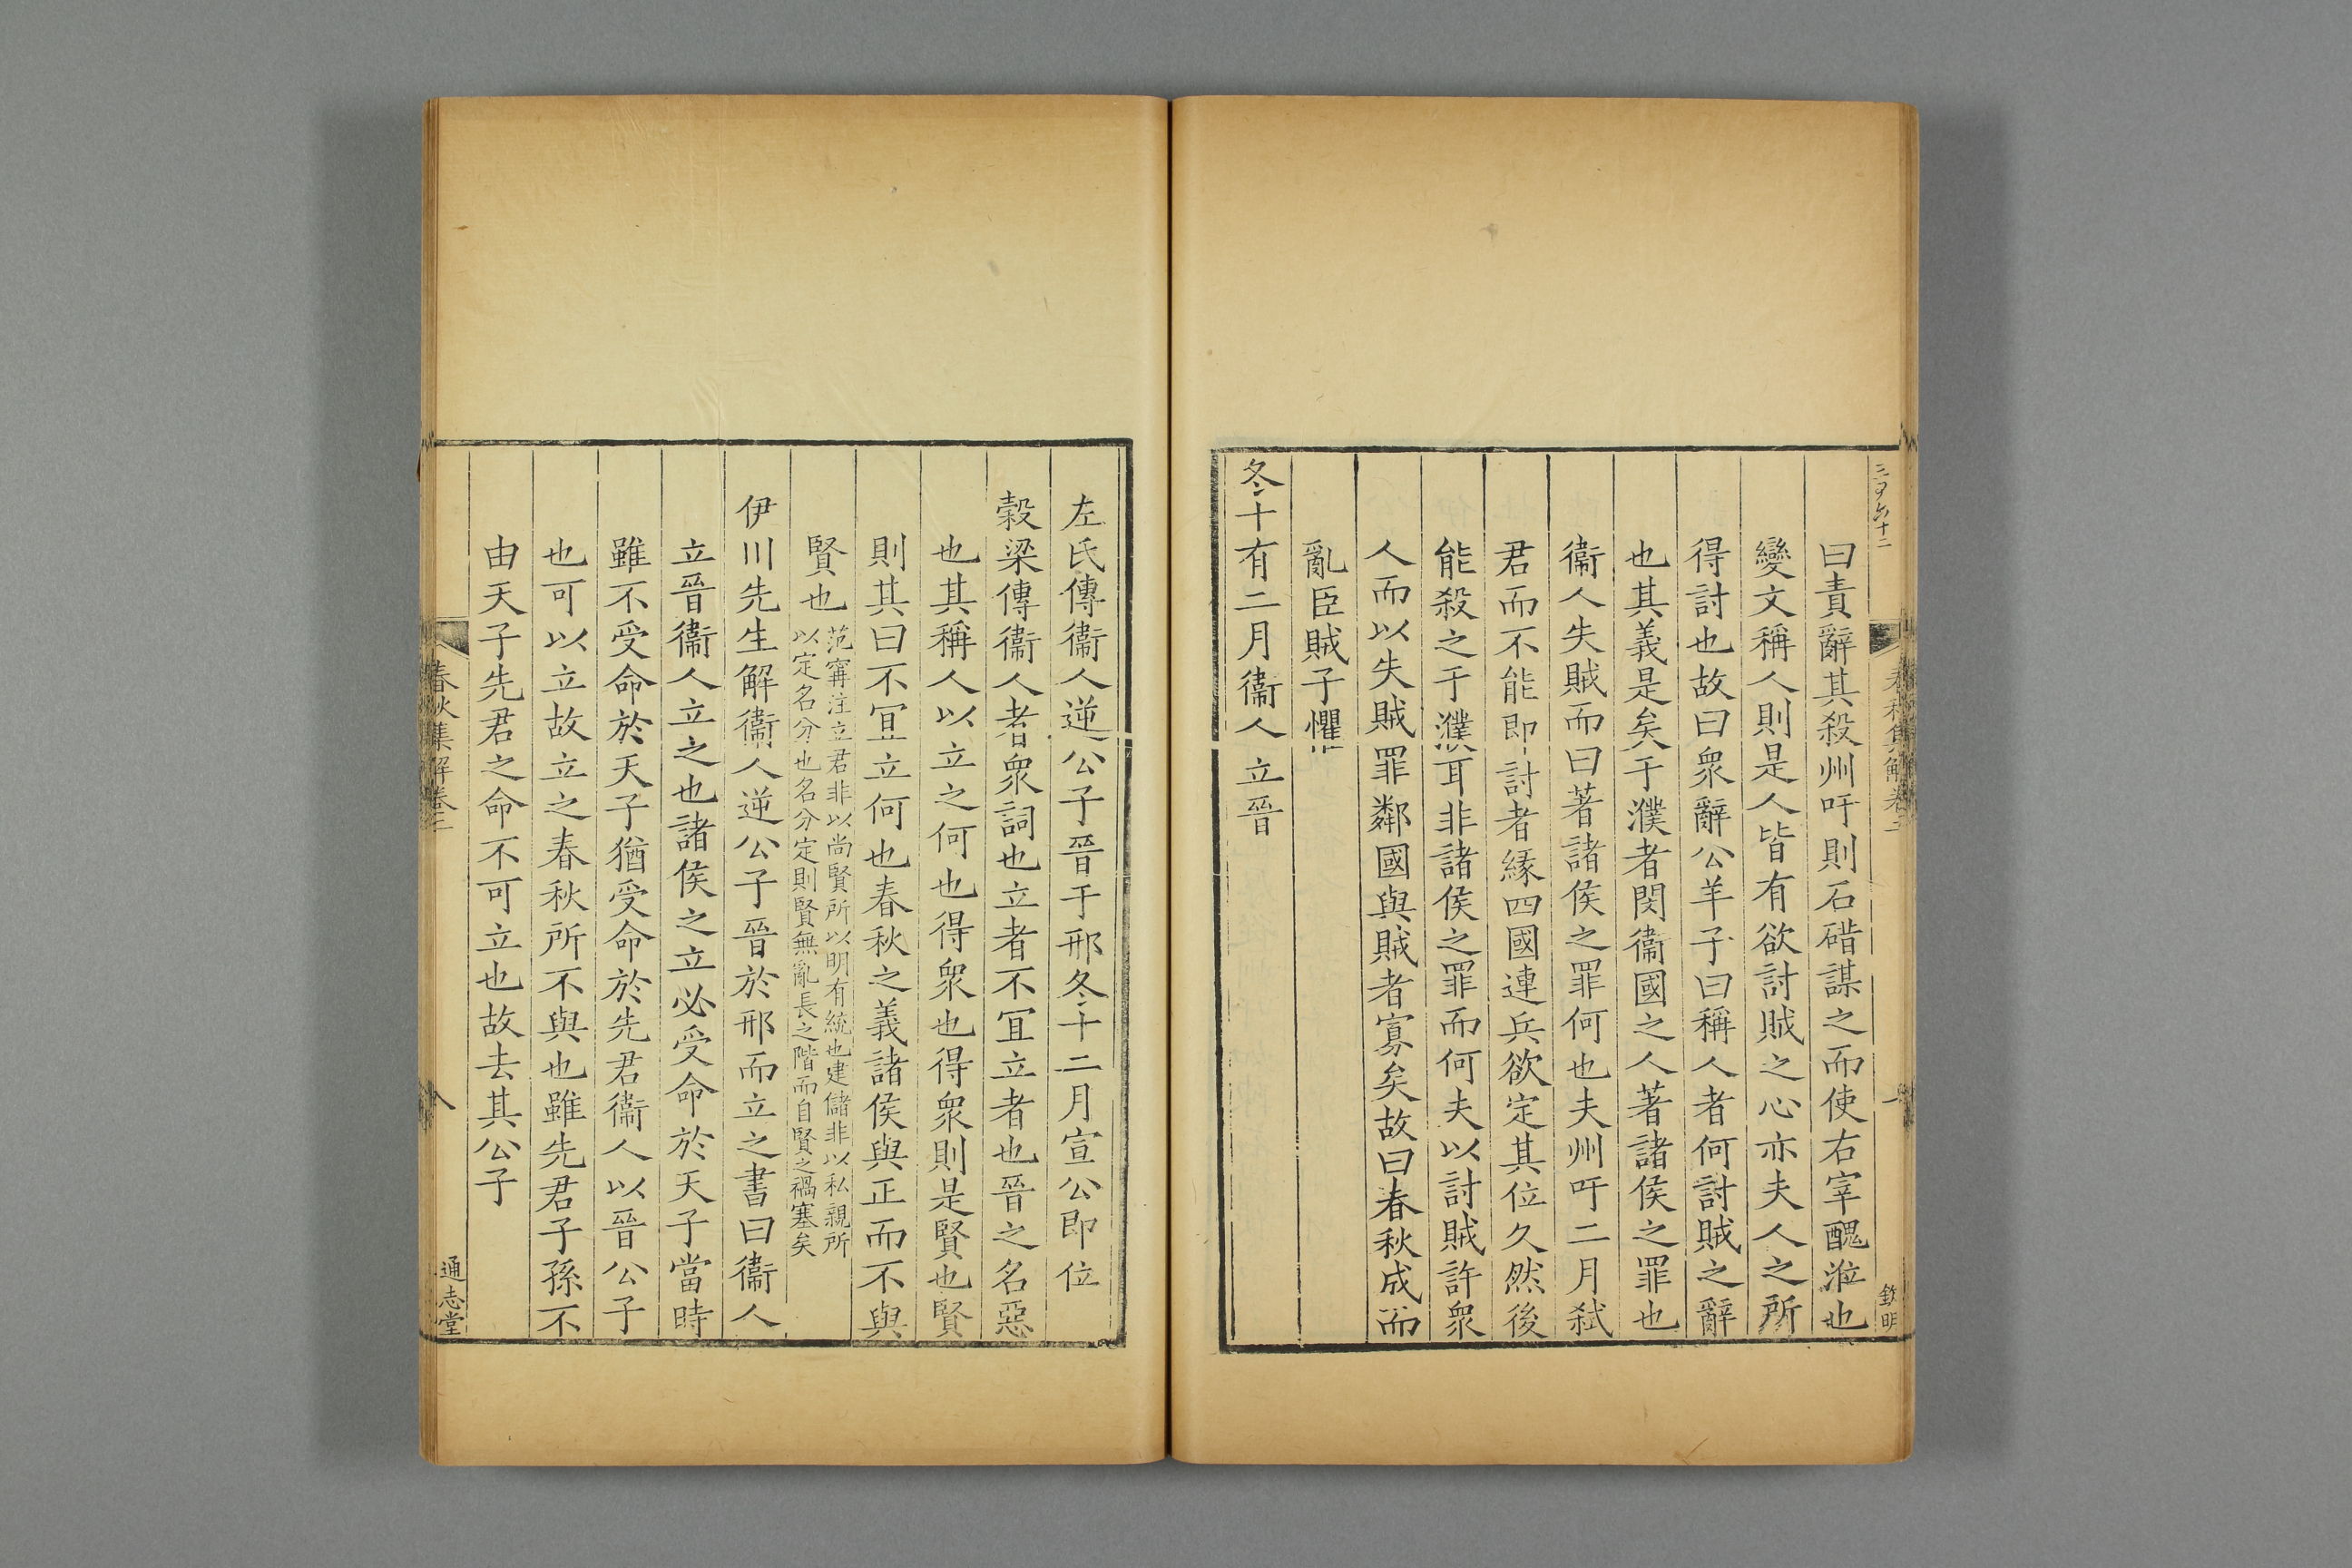 曰責辭其殺州吁則石碏謀之而使右宰醜涖也
變文稱人則是人皆有欲討賊之心亦夫人之所
得討也故曰衆辭公羊子曰稱人者何討賊之辭
也其義是矣于濮者閔衞國之人著諸侯之罪也
衞人失賊而曰著諸侯之罪何也夫州吁二月弑
君而不能即討者緣四國連兵欲定其位久然後
能殺之于濮耳非諸侯之罪而何夫以討賊許衆
人而以失賊罪鄰國與賊者寡矣故曰春秋成而
亂臣賊子懼
冬十有二月衞人立晉
左氏傳衞人逆公子晉于邢冬十二月宣公即位
穀梁傳衞人者衆詞也立者不宜立者也晉之名惡
也其稱人以立之何也得衆也得衆則是賢也賢
則其曰不宜立何也春秋之義諸侯與正而不與
賢也范甯注立君非以尚賢所以明有統也建儲非以私親所
以定名分也名分定則賢無亂長之階而自賢之禍塞矣
伊川先生解衞人逆公子晉於邢而立之書曰衞人
立晉衞人立之也諸侯之立必受命於天子當時
雖不受命於天子猶受命於先君衞人以晉公子
也可以立故立之春秋所不與也雖先君子孫不
由天子先君之命不可立也故去其公子
春秋集解卷三
八
通志堂